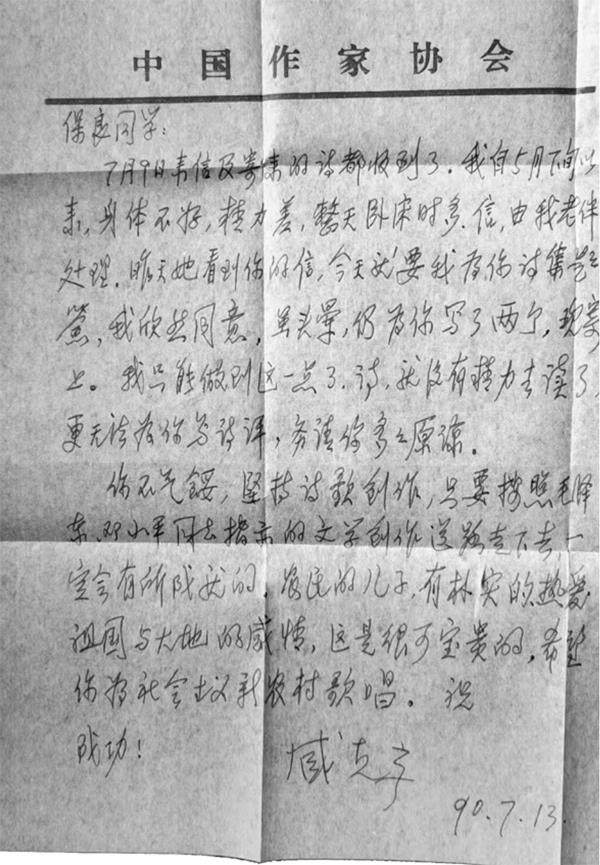 中国作家协会
保良同学：
7月9日来信及寄来的诗都收到了. 我自5月下旬以
来, 身体不好, 精力差, 整天卧床时多. 信, 由我老伴
处理. 昨天她看到你的信, 今天就要我为你诗集题
签, 我欣然同意, 虽头晕, 仍为你写了两个, 现寄
上。我只能做到这一点了. 诗, 就没有精力去读了,
更无法为你写诗评, 务请你多多原谅。
你不气馁, 坚持诗歌创作, 只要按照毛泽
东、邓小平同志指示的文学创作道路走下去一
定会有所成就的. 农民的儿子, 有朴实的热爱
祖国与大地的感情, 这是很可宝贵的, 希望
你为社会主义新农村歌唱。祝
成功！
臧克家
90.7.13.